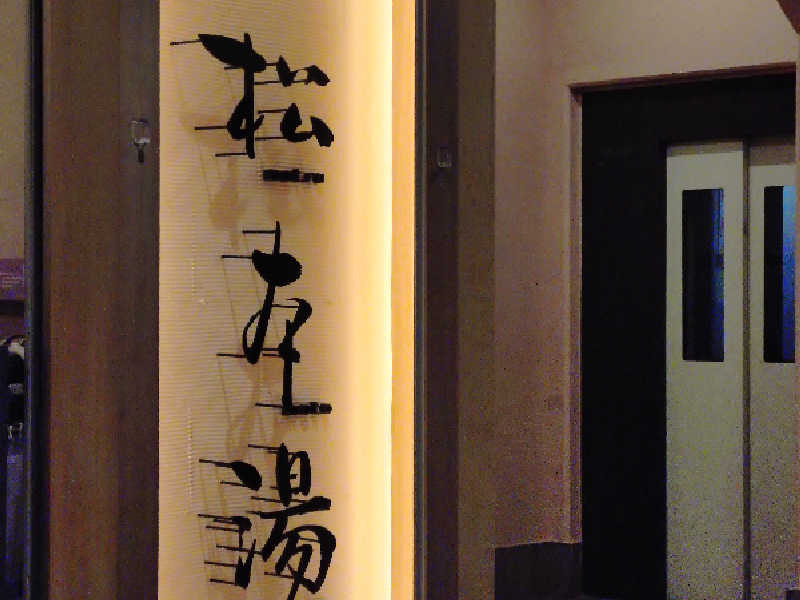 松本湯